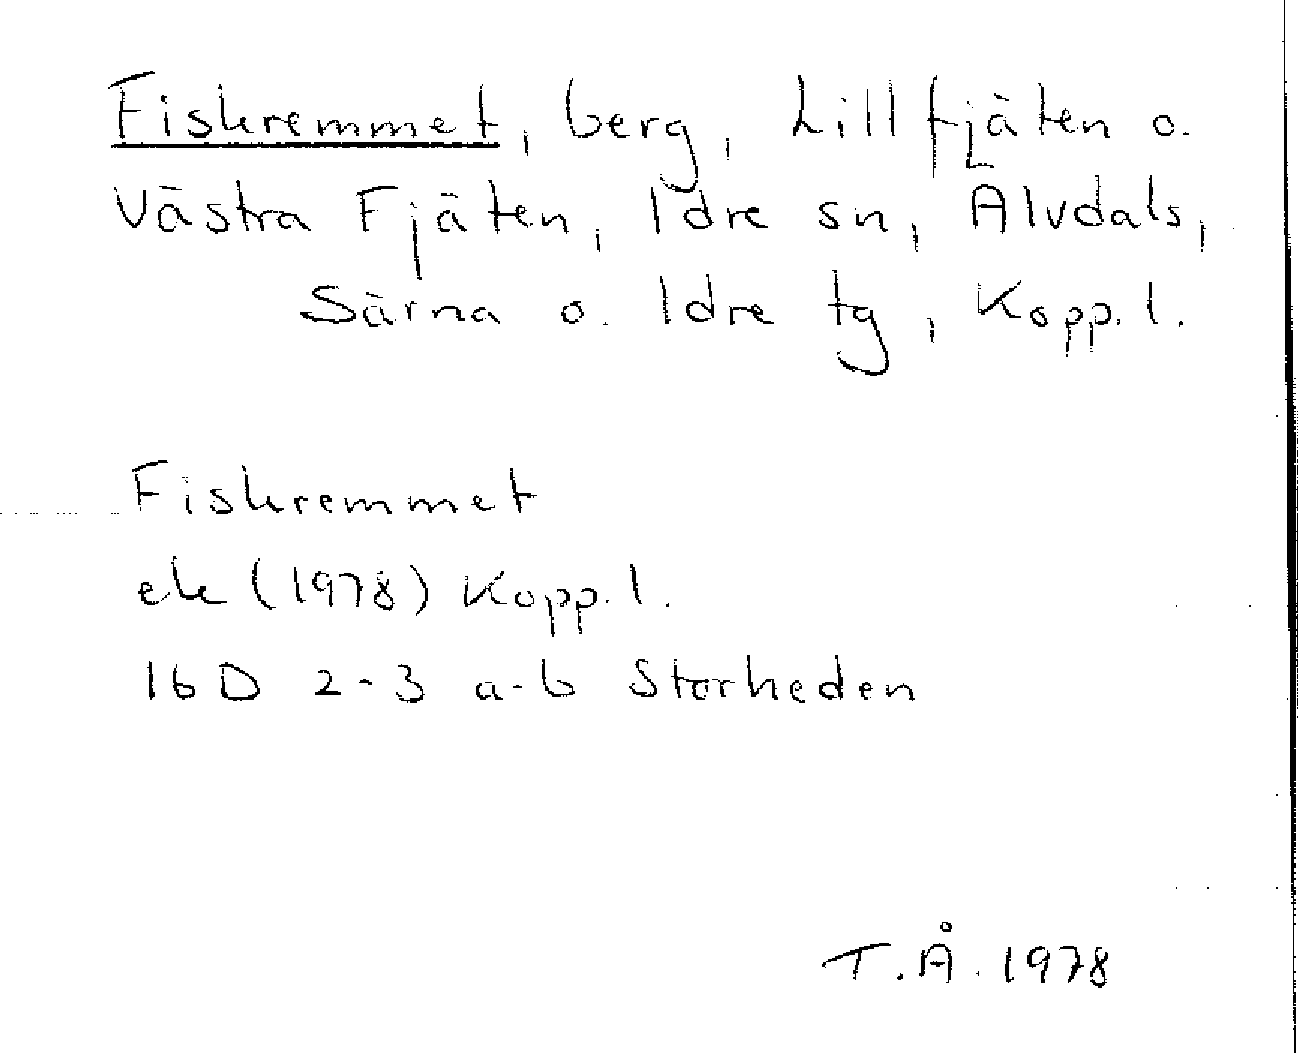 Fiskremmet, berg, Lillfjäten o.
Västra Fjäten, Idre sn, Älvdals,
Särna o. Idre tg, Kopp. l.
Fiskremmet
ek (1978) Kopp. l.
16 D 2-3 a-b Storheden
T.Å. 1978